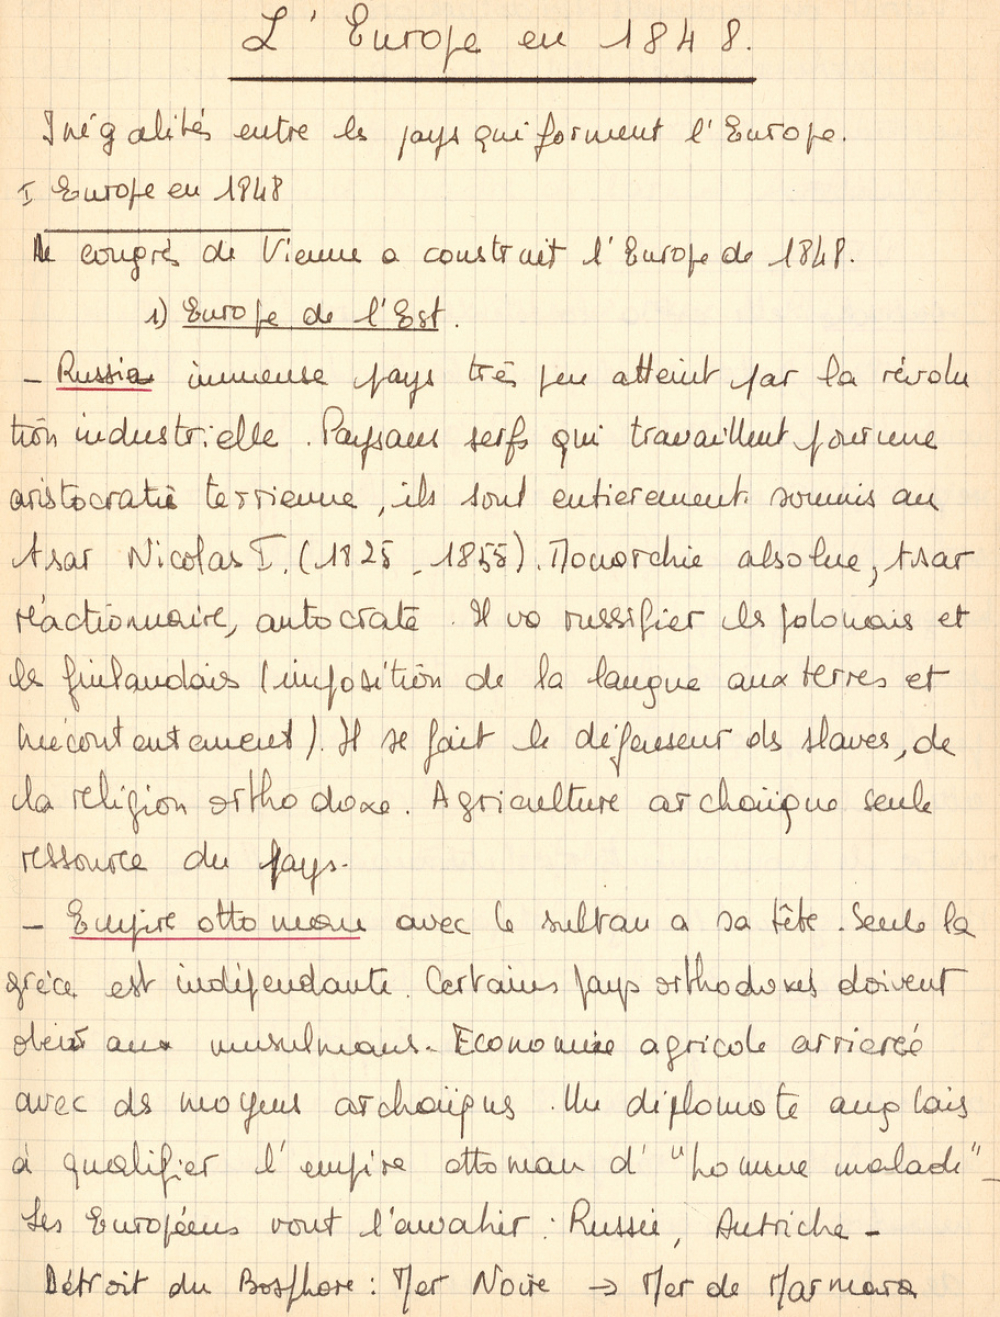 L'Europe en 1848.
Inégalités entre les pays qui forment l'Europe.
I Europe en 1848
Le congrès de Vienne a construit l'Europe de 1848.
1) Europe de l'Est.
- Russie immense pays très peu atteint par la révolu
tion industrielle. Paysans serfs qui travaillent pour une
aristocratie terrienne, ils sont entierement soumis au
tsar Nicolas I. (1825 - 1855). Monarchie absolue, tsar
réactionnaire, autocrate. Il va russifier les polonais et
les finlandais (imposition de la langue aux terres et
mécontentement). Il se fait le défenseur des slaves, de
la religion orthodoxe. Agriculture archaïque seule
ressource du pays.
- Empire ottoman avec le sultan a sa tête. Seule la
grèce est indépendante. Certains pays orthodoxes doivent
obéir aux musulmans. Economie agricole arrierée
avec des moyens archaïques. Un diplomate anglais
à qualifier l'empire ottoman d'"homme malade"
Les Européens vont l'envahir : Russie, Autriche -
Détroit du Bosphore : Mer Noire → Mer de Marmara